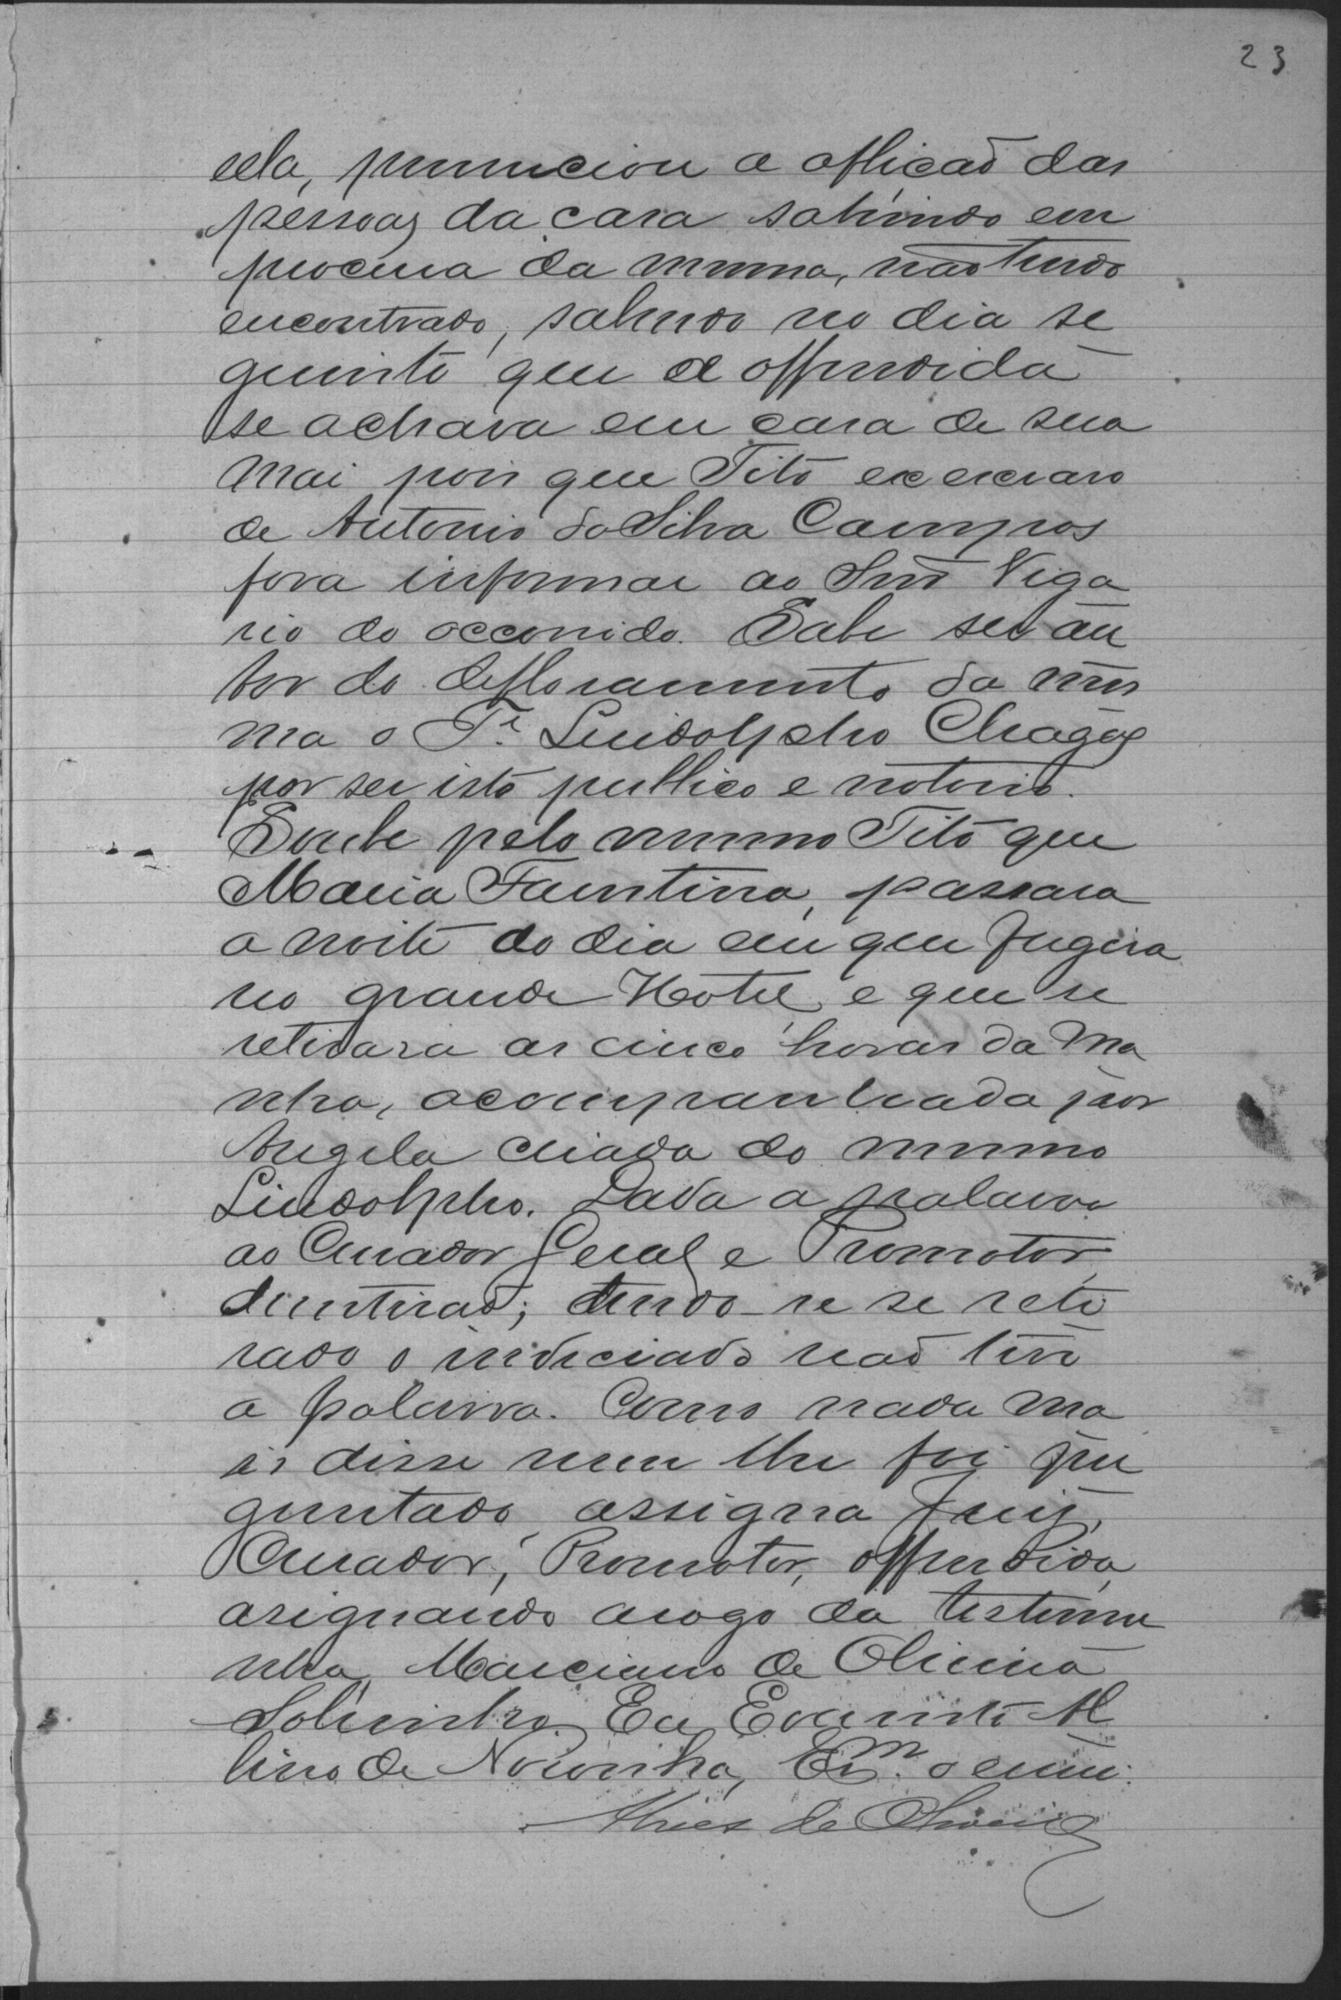 23
cela, prenunciou a aflicaõ das
pessoas da casa sahindo em
procura da mesma, naõ tendo
encontrado, sabendo no dia se
guinte que a offendida
se achava em casa de sua
mai pois que Tito ex escravo
de Antonio da Silva Campos
fora informar ao Snr Viga
rio do occorrido. Sabe ser au
tor do defloramento da mes
ma o Te. Lindolpho Chagas
por ser isto publico e notorio.
Soube pelo mesmo Tito que
Maria Faustina, passara
a noite do dia em que fugira
no grande Hotel, e que se
retirara as cinco horas da ma
nha, acompanhada por
Angela criada do mesmo
Lindolpho. Dada a palavra
ao Curador Geral e Promotor
desistiraõ; tendo-se se reti
rado o indiciado naõ tem
a palavra. Como nada ma
is disse nem lhe foi per
guntado, assigna Juiz,
Curador, Promotor, offendida,
asignando arogo da testemu
nha, Marciano de Oliveira
Sobrinho. Eu Evaristo Al
bino de Noronha, Em. o escrevi.
Alves de Oliveira